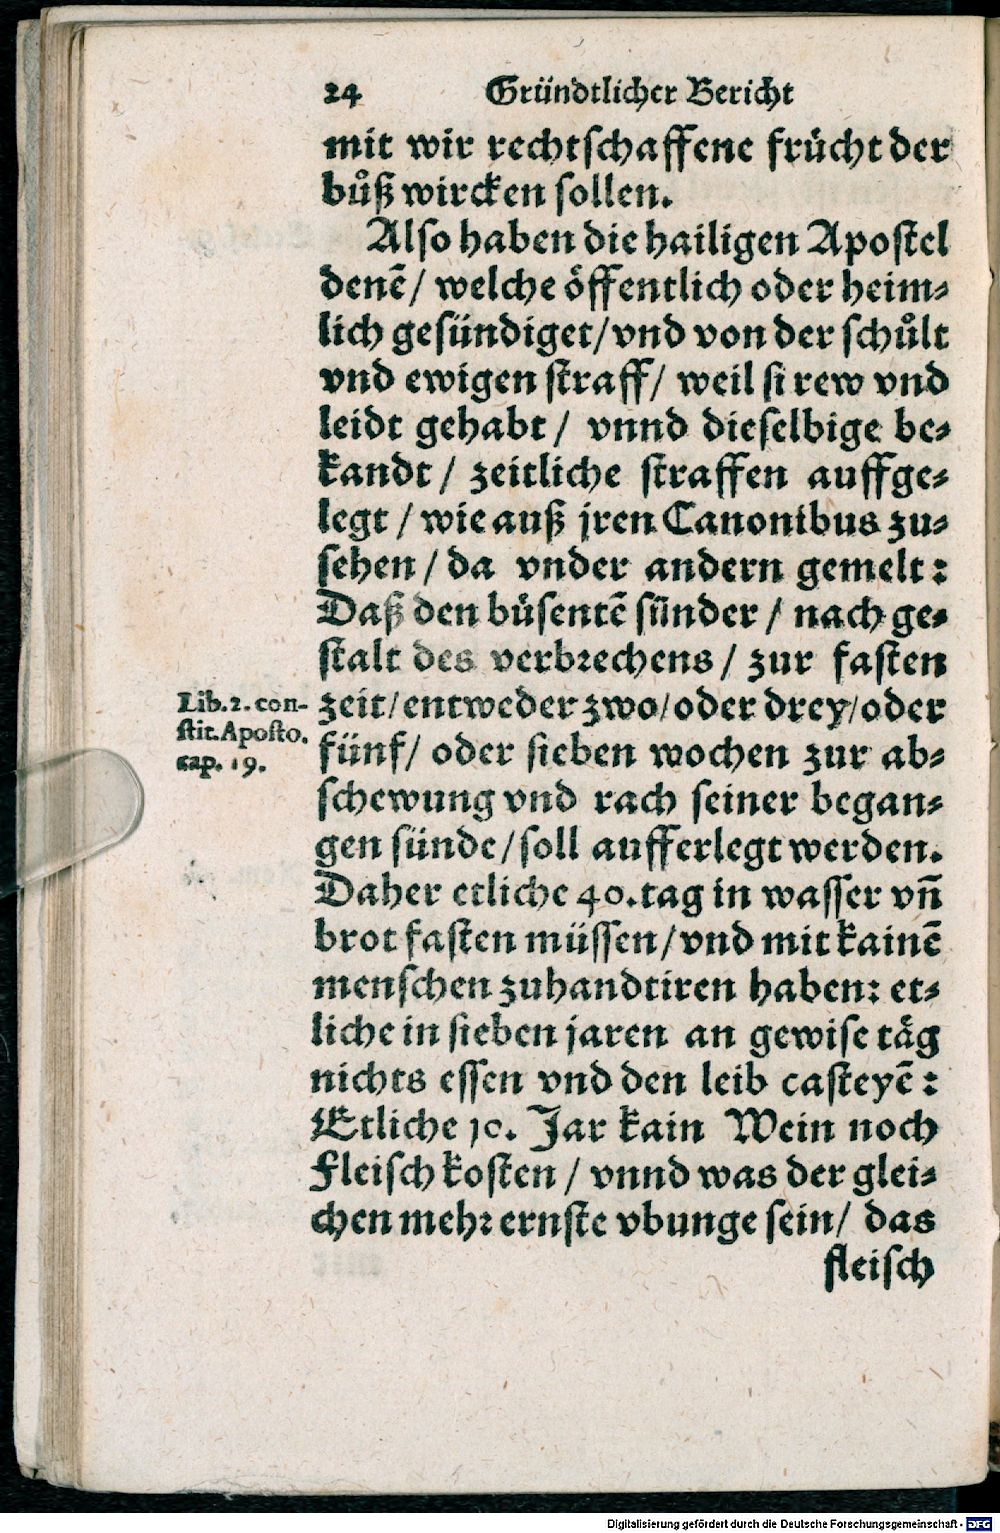 24 Gründtlicher Bericht
mit wir rechtschaffene frücht der
bůß wircken sollen.
Also haben die hailigen Apostel
denē/ welche öffentlich oder heim⸗
lich gesündiget/ vnd von der schůlt
vnd ewigen straff/ weil si rew vnd
leidt gehabt/ vnnd dieselbige be⸗
kandt/ zeitliche straffen auffge⸗
legt/ wie auß jren Canonibus zu⸗
sehen/ da vnder andern gemelt:
Daß den büsentē sünder/ nach ge⸗
stalt des verbrechens/ zur fasten
Lib. 2. con-
stit. Aposto.
cap. 19.
zeit/ entweder zwo/ oder drey/ oder
fünf/ oder sieben wochen zur ab⸗
schewung vnd rach seiner began⸗
gen sünde/ soll aufferlegt werden.
Daher etliche 40. tag in wasser vñ
brot fasten müssen/ vnd mit kainē
menschen zuhandtiren haben: et⸗
liche in sieben jaren an gewise täg
nichts essen vnd den leib casteyē:
Etliche 10. Jar kain Wein noch
Fleisch kosten/ vnnd was der glei⸗
chen mehr ernste vbunge sein/ das
fleisch
Digitalisierung gefördert durch die Deutsche Forschungsgemeinschaft - DFG